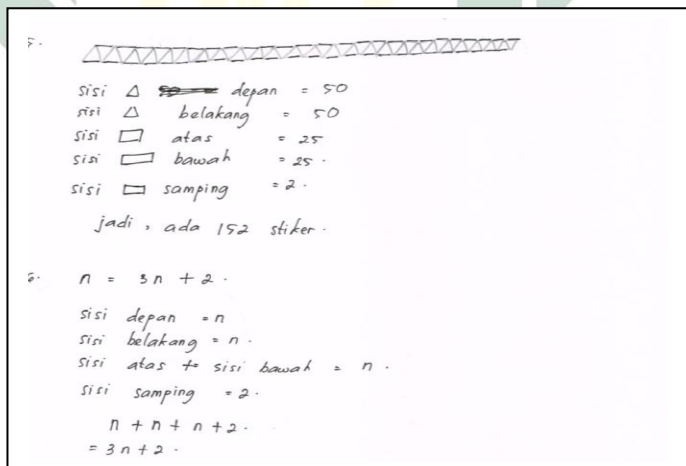 5.
sisi △ depan = 50
sisi △ belakang = 50
sisi ▭ atas = 25
sisi ▭ bawah = 25.
sisi ▭ samping = 2.
jadi, ada 152 stiker.
6. n = 3n + 2.
sisi depan = n
sisi belakang = n.
sisi atas + sisi bawah = n.
sisi samping = 2.
n + n + n + 2.
= 3n + 2.